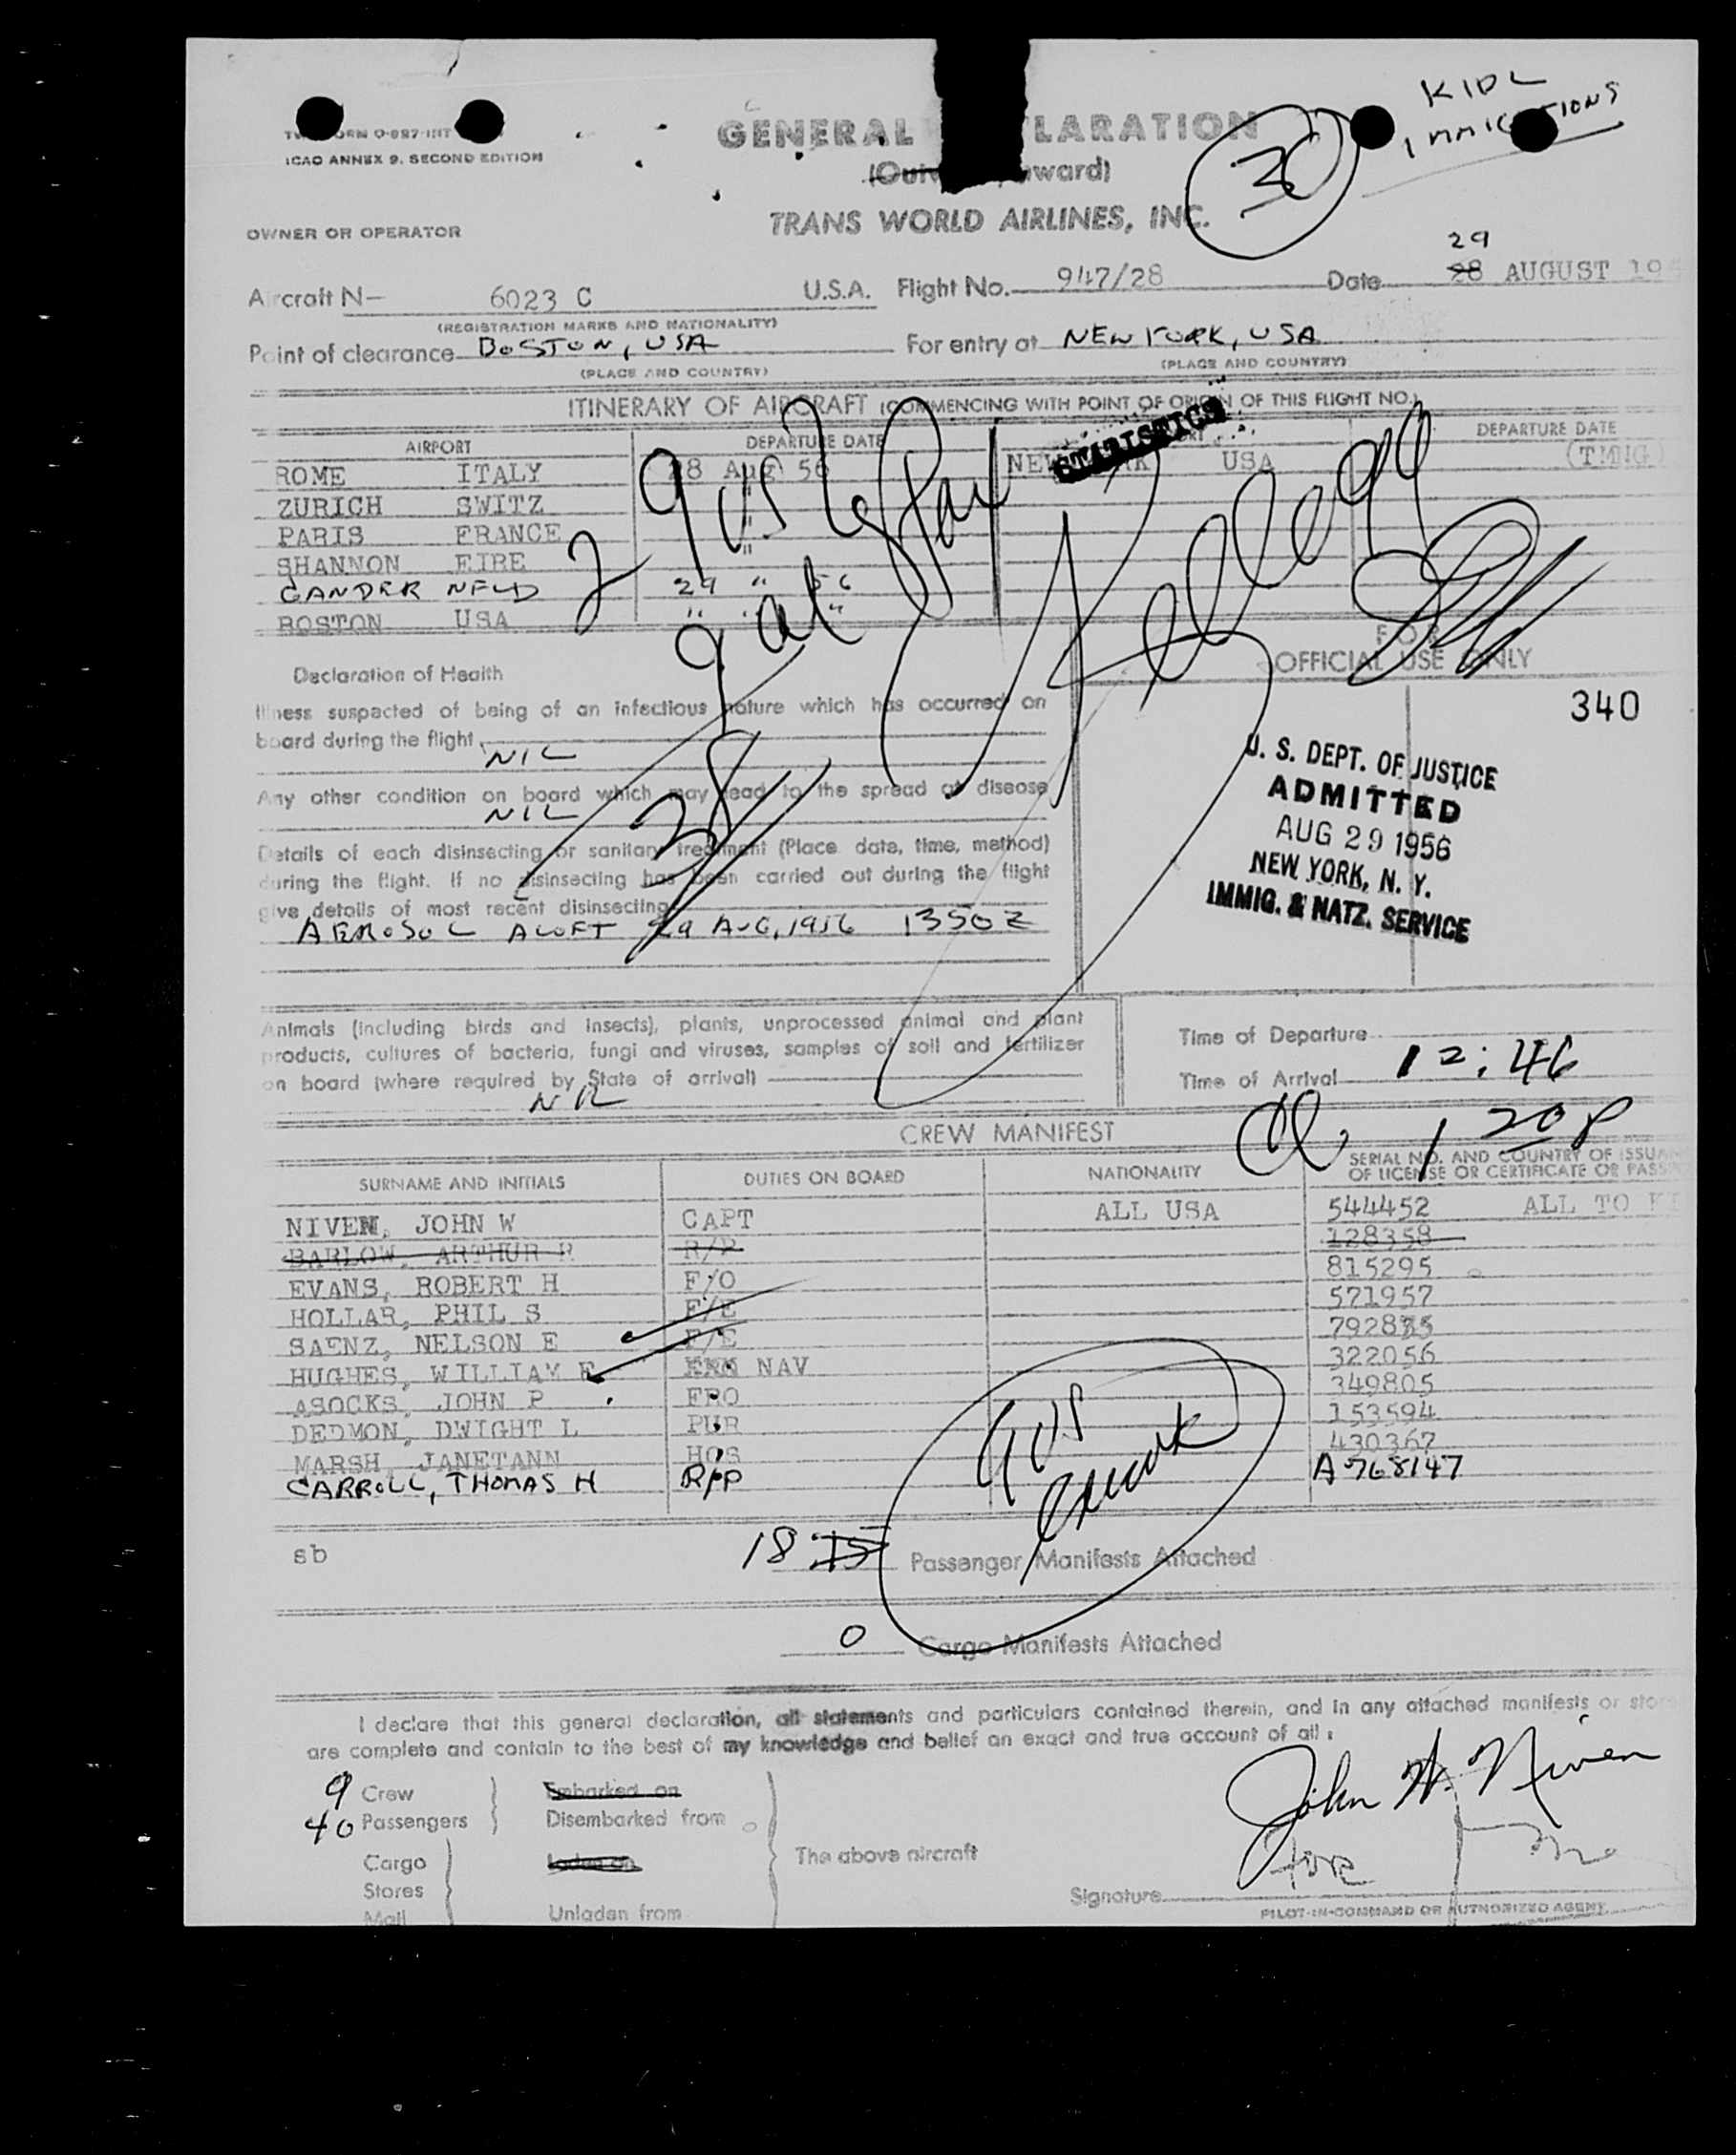 KIDL
IMMIGRATIONS
ORM O-897-INT
ICAO ANNEX 9. SECOND EDITION
GENERAL LARATION
30
TRANS WORLD AIRLINES, INC.
OWNER OR OPERATOR
29
Aircraft N- 6023 C U.S.A. Flight No. 947/28 Date 28 AUGUST 19
(REGISTRATION MARKS AND NATIONALITY)
Point of clearance BOSTON, USA For entry at NEW YORK, USA
(PLACE AND COUNTRY) (PLACE AND COUNTRY)
ITINERARY OF AIRCRAFT (COMMENCING WITH POINT OF ORIGIN OF THIS FLIGHT NO.)
AIRPORT DEPARTURE DATE DEPARTURE DATE
STATISTICS
ROME ITALY 28 Aug 56 NEW YORK USA (TMNG)
ZURICH SWITZ "
PARIS FRANCE "
SHANNON EIRE "
GANDER NFLD 29 " 56
BOSTON USA " " "
FOR
OFFICIAL USE ONLY
Declaration of Health
Illness suspected of being of an infectious nature which has occurred on
board during the flight NIL
Any other condition on board which may lead to the spread of disease
NIL
Details of each disinsecting or sanitary treatment (Place date, time, method)
during the flight. If no disinsecting has been carried out during the flight
give details of most recent disinsecting
AEROSOL ALOFT 29 AUG, 1956 1350Z
340
U. S. DEPT. OF JUSTICE
ADMITTED
AUG 29 1956
NEW YORK, N. Y.
IMMIG. & NATZ. SERVICE
Animals (including birds and insects), plants, unprocessed animal and plant
products, cultures of bacteria, fungi and viruses, samples of soil and fertilizer
on board (where required by State of arrival)
NR
Time of Departure
Time of Arrival 12:46
1 20 P
CREW MANIFEST
SURNAME AND INITIALS DUTIES ON BOARD NATIONALITY SERIAL NO. AND COUNTRY OF ISSUAN
OF LICENSE OR CERTIFICATE OR PASS
NIVEN, JOHN W CAPT ALL USA 544452 ALL TO
BARLOW, ARTHUR R R/P 128358
EVANS, ROBERT H F/O 815295
HOLLAR, PHIL S F/E 571957
SAENZ, NELSON E F/E 792835
HUGHES, WILLIAM F NAV 322056
ASOCKS, JOHN P FRO 349805
DEDMON, DWIGHT L PUR 153594
MARSH, JANETANN HOS 430367
CARROLL, THOMAS H R/P A 768147
9 US
sb
18 15 Passenger Manifests Attached
0 Cargo Manifests Attached
I declare that this general declaration, all statements and particulars contained therein, and in any attached manifests or stor
are complete and contain to the best of my knowledge and belief an exact and true account of all :
9 Crew Embarked on
40 Passengers Disembarked from
Cargo Laden on The above aircraft
Stores
Mail Unladen from
John W. Niven
Signature
PILOT-IN-COMMAND OR AUTHORIZED AGENT